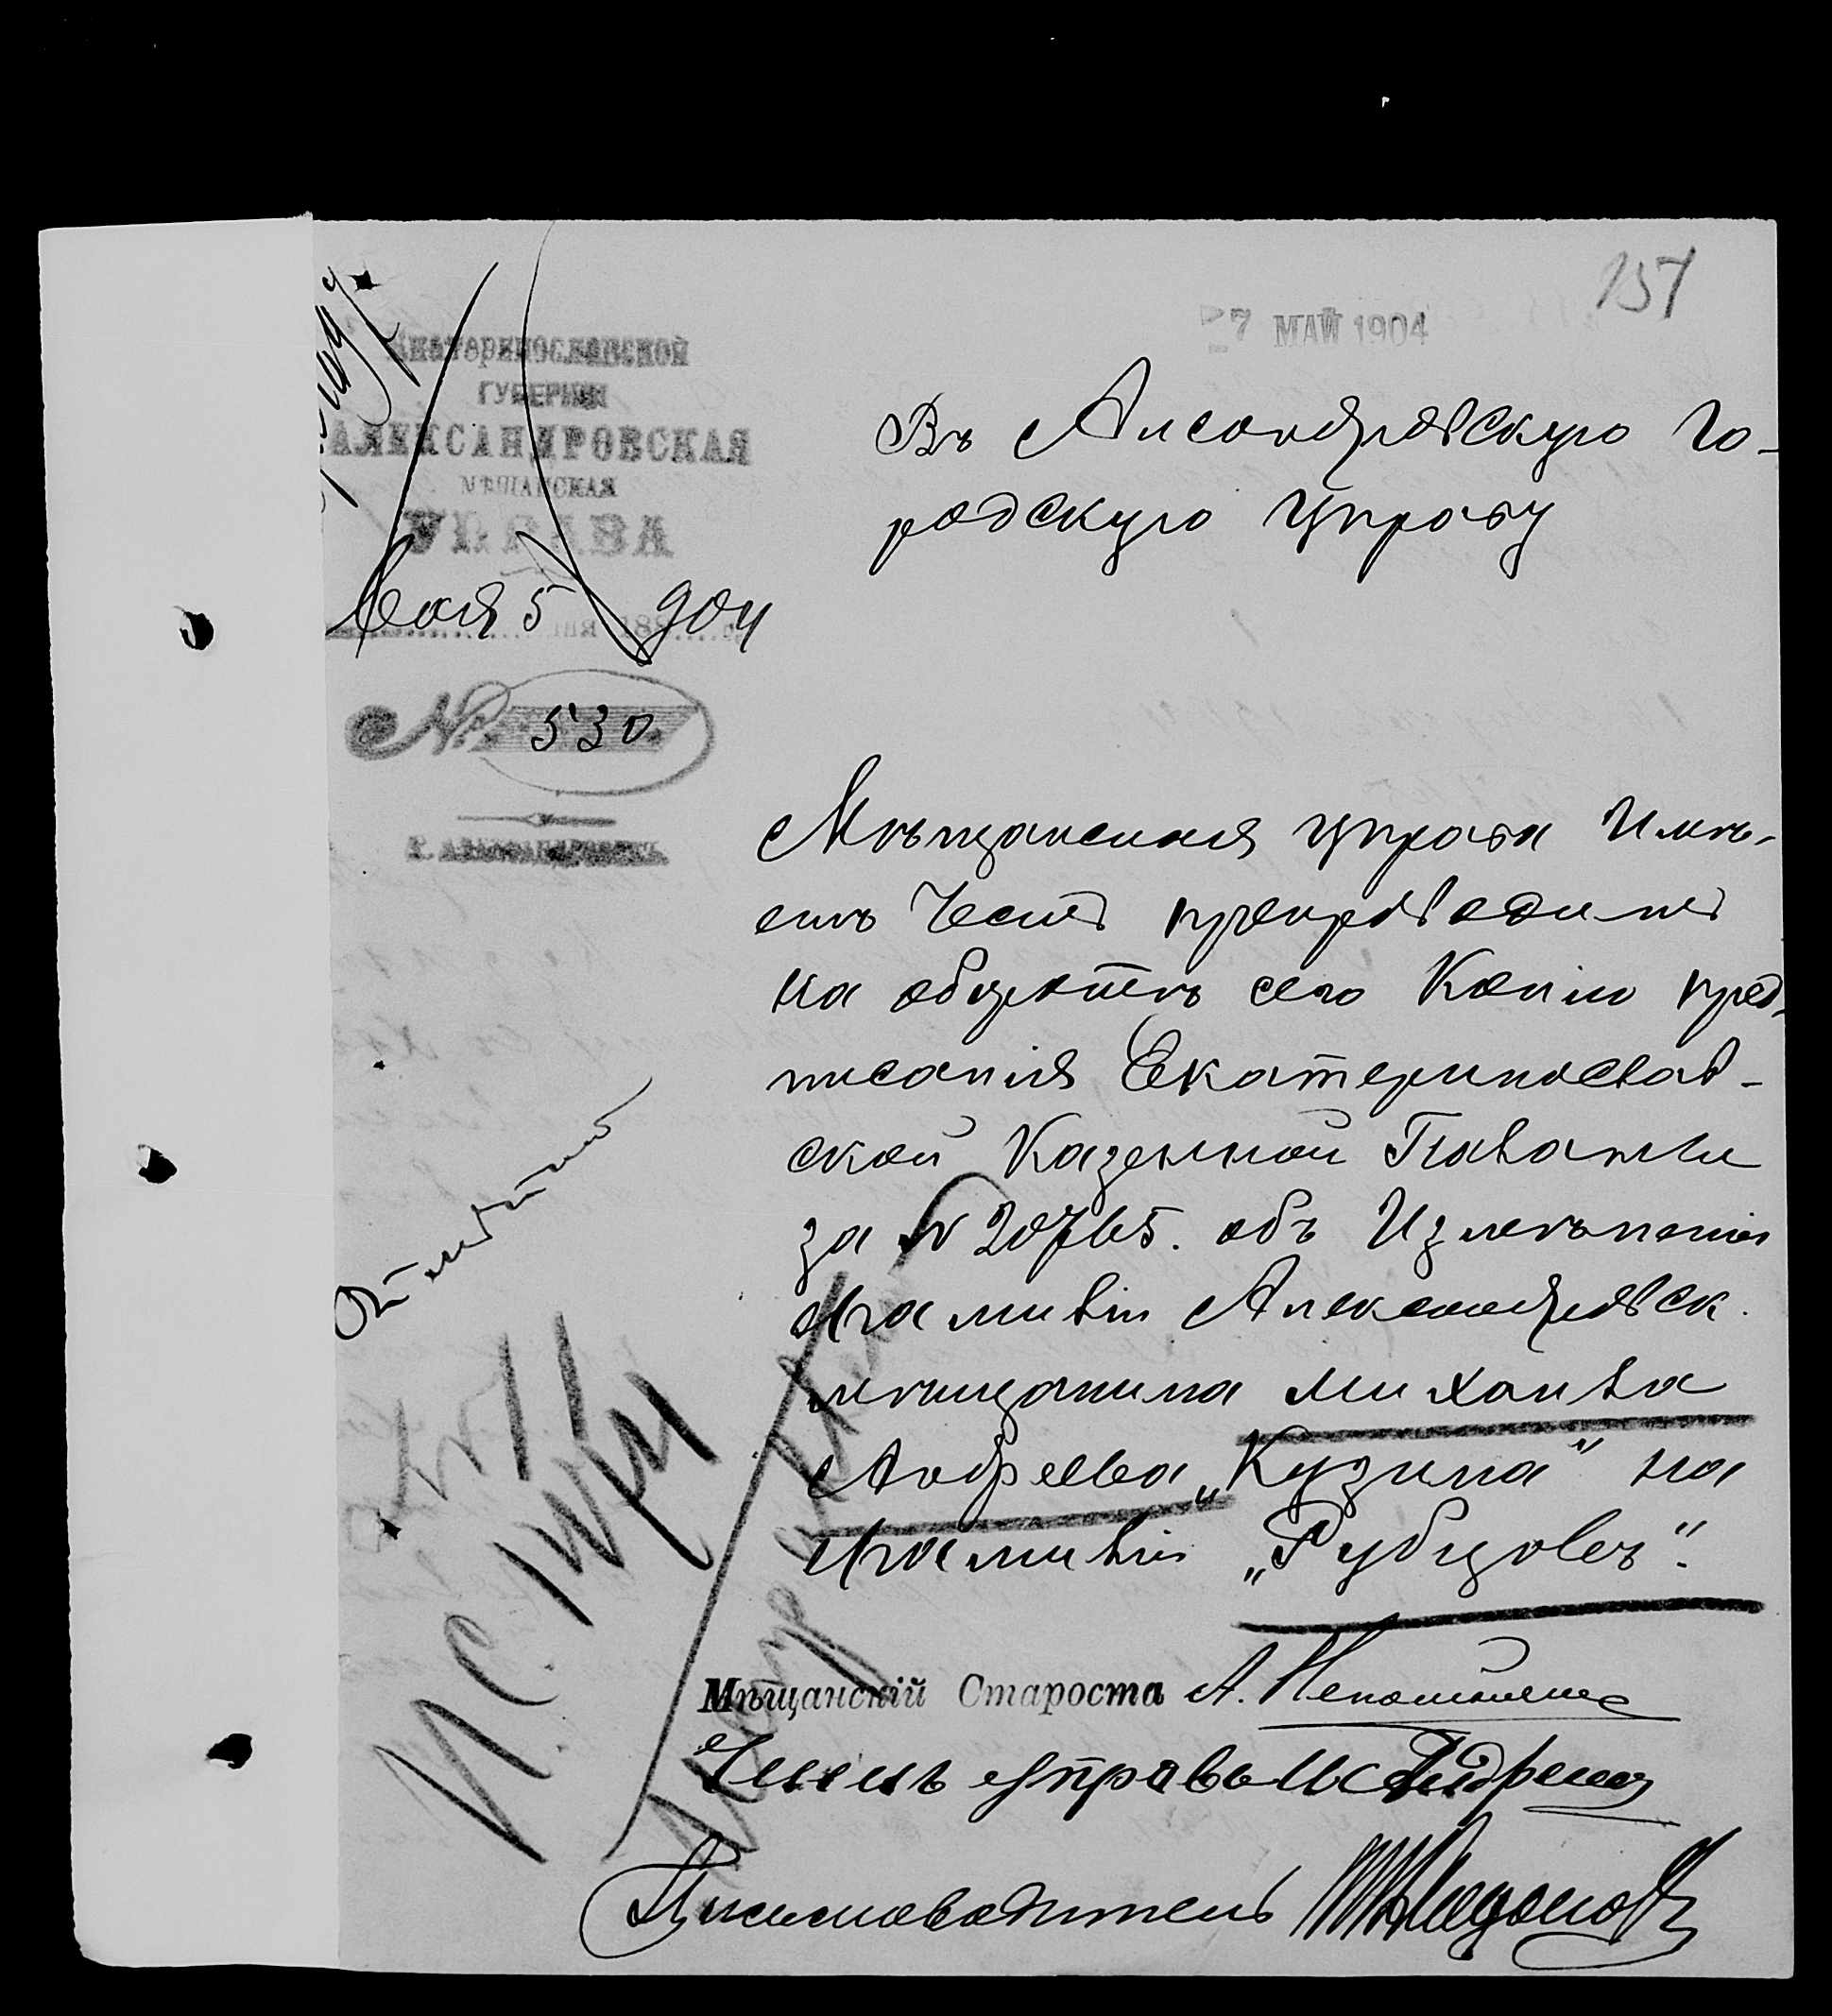 151
7 МАЙ 1904
Екатеринославской
ГУБЕРНІИ
АЛЕКСАНДРОВСКАЯ
МѢЩАНСКАЯ
УПРАВА
Мая 5 904
№ 530.
Г. АЛЕКСАНДРОВСКЪ
Въ Алесандровскую Го-
родскую Управу
Мѣщанская управа Имѣ-
етъ Честь препроводить
на оборотѣ сего Копію пред-
писанія Екатеринослав-
ской Казенной Палаты
за № 20765. объ Измѣненіи
Фамиліи Александровск.
мѣщанина Михаила
Андреева „Кузина" на
Фамилію „Рубцовъ".
Мѣщанскій Староста А.
Членъ управы
Письмоводитель